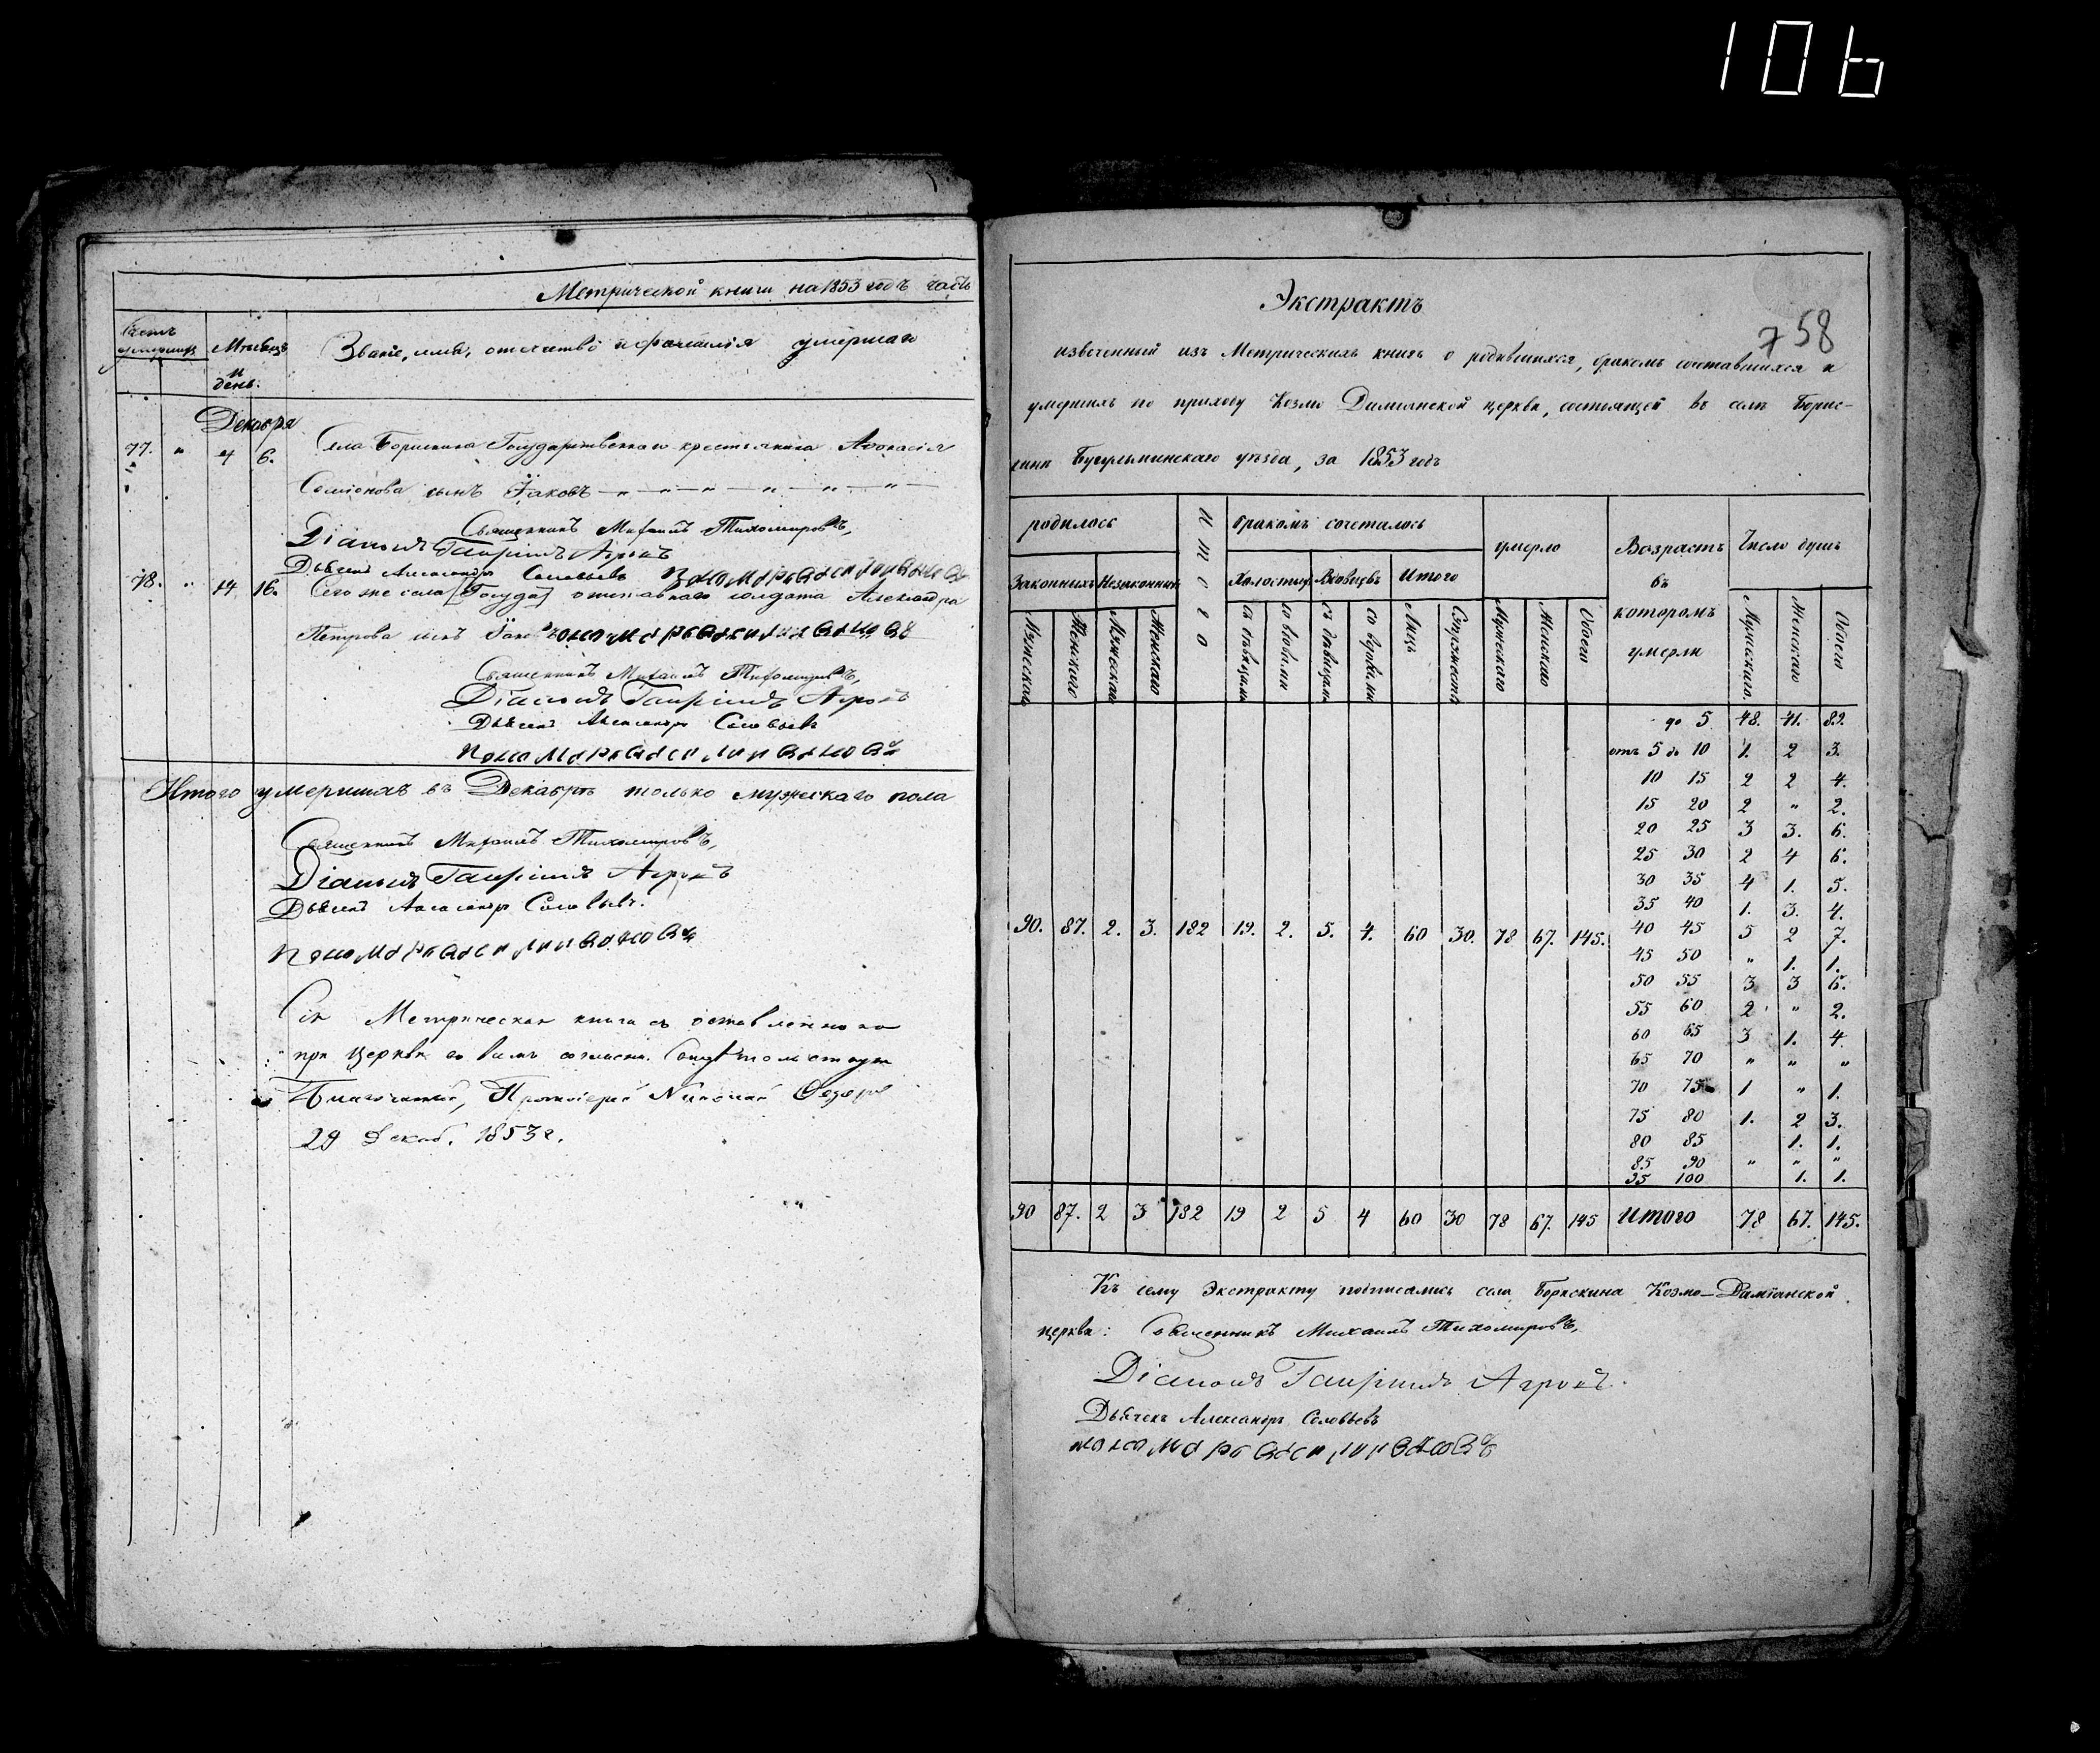 106
Метрической книги на 1853 годъ часть
Счетъ умершихъ
Мѣсяцъ и день.
Званіе, имя, отечество и фамилія умершаго
Декабря
77. " 4 6. Села Борискина Государственнаго крестьянина Аѳонасія
Семіонова сынъ Іаковъ
Священникъ Михаилъ Тихомировъ,
Діаконъ Гавріилъ Агровъ
Дьячекъ Александръ Соловьевъ
78. " 14 16. Сего же села [Государ] отставнаго солдата Александра
Петрова сынъ Іаковъ
Священникъ Михаилъ Тихомировъ,
Діаконъ Гавріилъ Агровъ
Дьячекъ Александръ Соловьевъ
Пономарь Василій Ивановъ
Итого умершихъ въ Декабрѣ только мужескаго пола
Священникъ Михаилъ Тихомировъ,
Діаконъ Гавріилъ Агровъ
Дьячекъ Александръ Соловьевъ.
Пономарь Василій Ивановъ
Сія Метрическая книга съ оставленною
при церкви во всемъ согласна.
Благочинный, Протоіерей Николай
29 Декаб. 1853 г.
Экстрактъ
758
извеченный изъ Метрическихъ книгъ о родившихся, бракомъ сочетавшихся и
умершихъ по приходу Козмо Даміанской церкви, состоящей въ селѣ Борис-
кинѣ Бугульминскаго уѣзда, за 1853 годъ
родилось
Итого
бракомъ сочеталось
умерло
Возрастъ въ которомъ умерли
Число душъ
Законныхъ Незаконныхъ
Холостых. Вдовцевъ Итого
Мужескаго Женскаго Мужескаго Женскаго
съ дѣвицами со вдовами съ дѣвицами со вдовами Лицъ Супружествъ
Мужескаго Женскаго Обоего
Мужескаго Женскаго Обоего
до 5 48. 41. 89.
отъ 5 до 10 1. 2 3.
10 15 2 2 4.
15 20 2 " 2.
20 25 3 3. 6.
25 30 2 4 6.
30 35 4 1. 5.
35 40 1. 3. 4.
90. 87. 2. 3. 182 19. 2. 5. 4. 60 30. 78 67. 145.
40 45 5 2 7.
45 50 " 1. 1.
50 55 3 3 6.
55 60 2 " 2.
60 65 3 1. 4.
65 70 " " "
70 75 1 " 1.
75 80 1. 2 3.
80 85 1. 1.
85 90 " " "
95 100 1. 1.
90 87. 2 3 182 19 2 5 4 60 30 78 67. 145 Итого 78 67. 145.
Къ сему Экстракту подписались села Борискина Козмо-Даміанской
церкви: Священникъ Михаилъ Тихомировъ,
Діаконъ Гавріилъ Агровъ.
Дьячекъ Александръ Соловьевъ
пономарь Василій Ивановъ